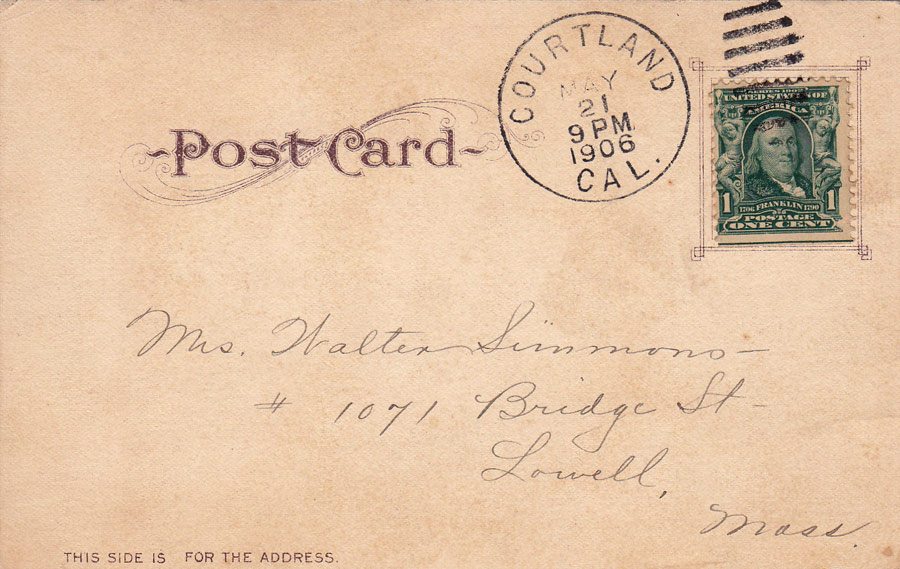 Post Card
COURTLAND
MAY
21
9 PM
1906
CAL.
SERIES 1902
UNITED STATES OF
AMERICA
1706 FRANKLIN 1790
1 1
POSTAGE
ONE CENT
Mrs. Walter Simmons
# 1071 Bridge St
Lowell,
Mass.
THIS SIDE IS FOR THE ADDRESS.